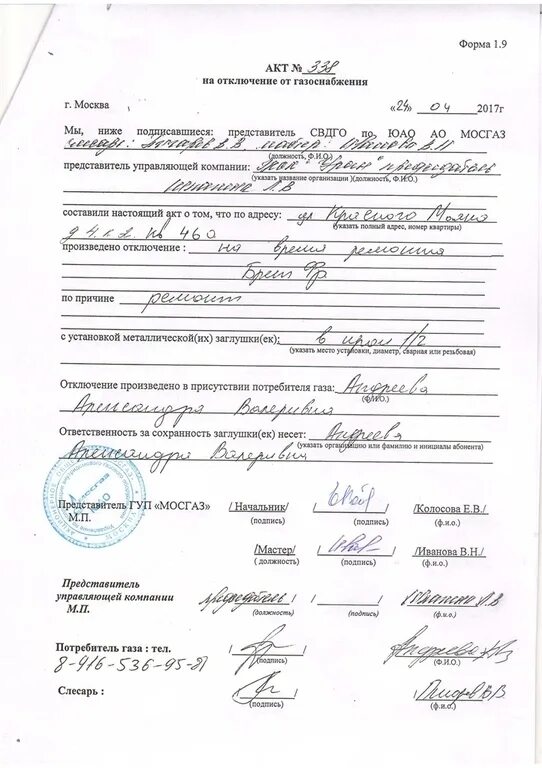 Форма 1.9
АКТ № 338
на отключение от газоснабжения
г. Москва «24» 04 2017г
Мы, ниже подписавшиеся: представитель СВДГО по ЮАО АО МОСГАЗ
слесарь: В.В мастер: Иванова В.Н
(должность, Ф.И.О.)
представитель управляющей компании: председатель
(указать название организации )(должность, Ф.И.О.)
Л.В
составили настоящий акт о том, что по адресу: ул Красного Маяка
(указать полный адрес, номер квартиры)
д 4 к 2 кв 460
произведено отключение : на время ремонта
по причине ремонт
с установкой металлической(их) заглушки(ек): 1/2
(указать место установки, диаметр, сварная или резьбовая)
Отключение произведено в присутствии потребителя газа: Андреева
(Ф.И.О.)
Александра Валериевич
Ответственность за сохранность заглушки(ек) несет: Андреева
(указать организацию или фамилию и инициалы абонента)
Александра Валериевич
Представитель ГУП «МОСГАЗ» / Начальник/ /Колосова Е.В./
М.П. (подпись) (подпись) (ф.и.о.)
/Мастер/ /Иванова В.Н./
( должность) (подпись) (ф.и.о.)
Представитель
управляющей компании председатель Л.В
М.П. (должность) (подпись) (ф.и.о.)
Потребитель газа : тел.
8-916-536-95-81 (подпись) Андреева (Ф.И.О.)
Слесарь : В.В
(подпись) (ф.и.о.)
МОСКВА